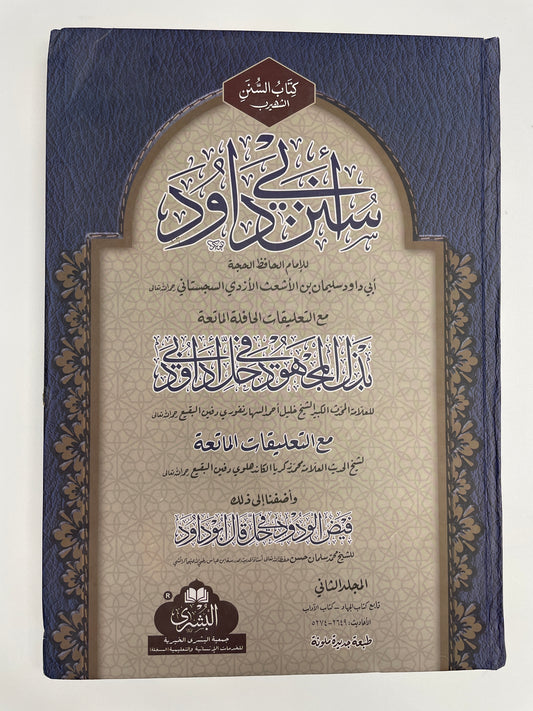 كِتَابُ السُّنَنِ
الشهير بـ
سُنَنُ أَبِي دَاوُد
للإمام الحافظ الحجة
أبي داود سليمان بن الأشعث الأزدي السجستاني رحمه الله تعالى
مع التعليقات الحافلة الماتعة
بَذْلُ الْمَجْهُودِ فِي حَلِّ أَبِي دَاوُد
للعلامة المحدث الكبير الشيخ خليل أحمد السهارنفوري دفين البقيع رحمه الله تعالى
مع التعليقات الماتعة
لشيخ الحديث العلامة محمد زكريا الكاندهلوي دفين البقيع رحمه الله تعالى
وأضفنا إلى ذلك
فَيْضُ الْوَدُودِ فِي حَلِّ قَالَ أَبُو دَاوُد
للشيخ محمد سلمان حسن حفظه الله تعالى
المجلد الثاني
تابع كتاب الجهاد – كتاب الآداب
الأحاديث: ٢٦٤٩-٥٢٧٤
طبعة جديدة ملونة
®
البُشرى
جمعية البشرى الخيرية
للخدمات الإنسانية والتعليمية (المسجلة)